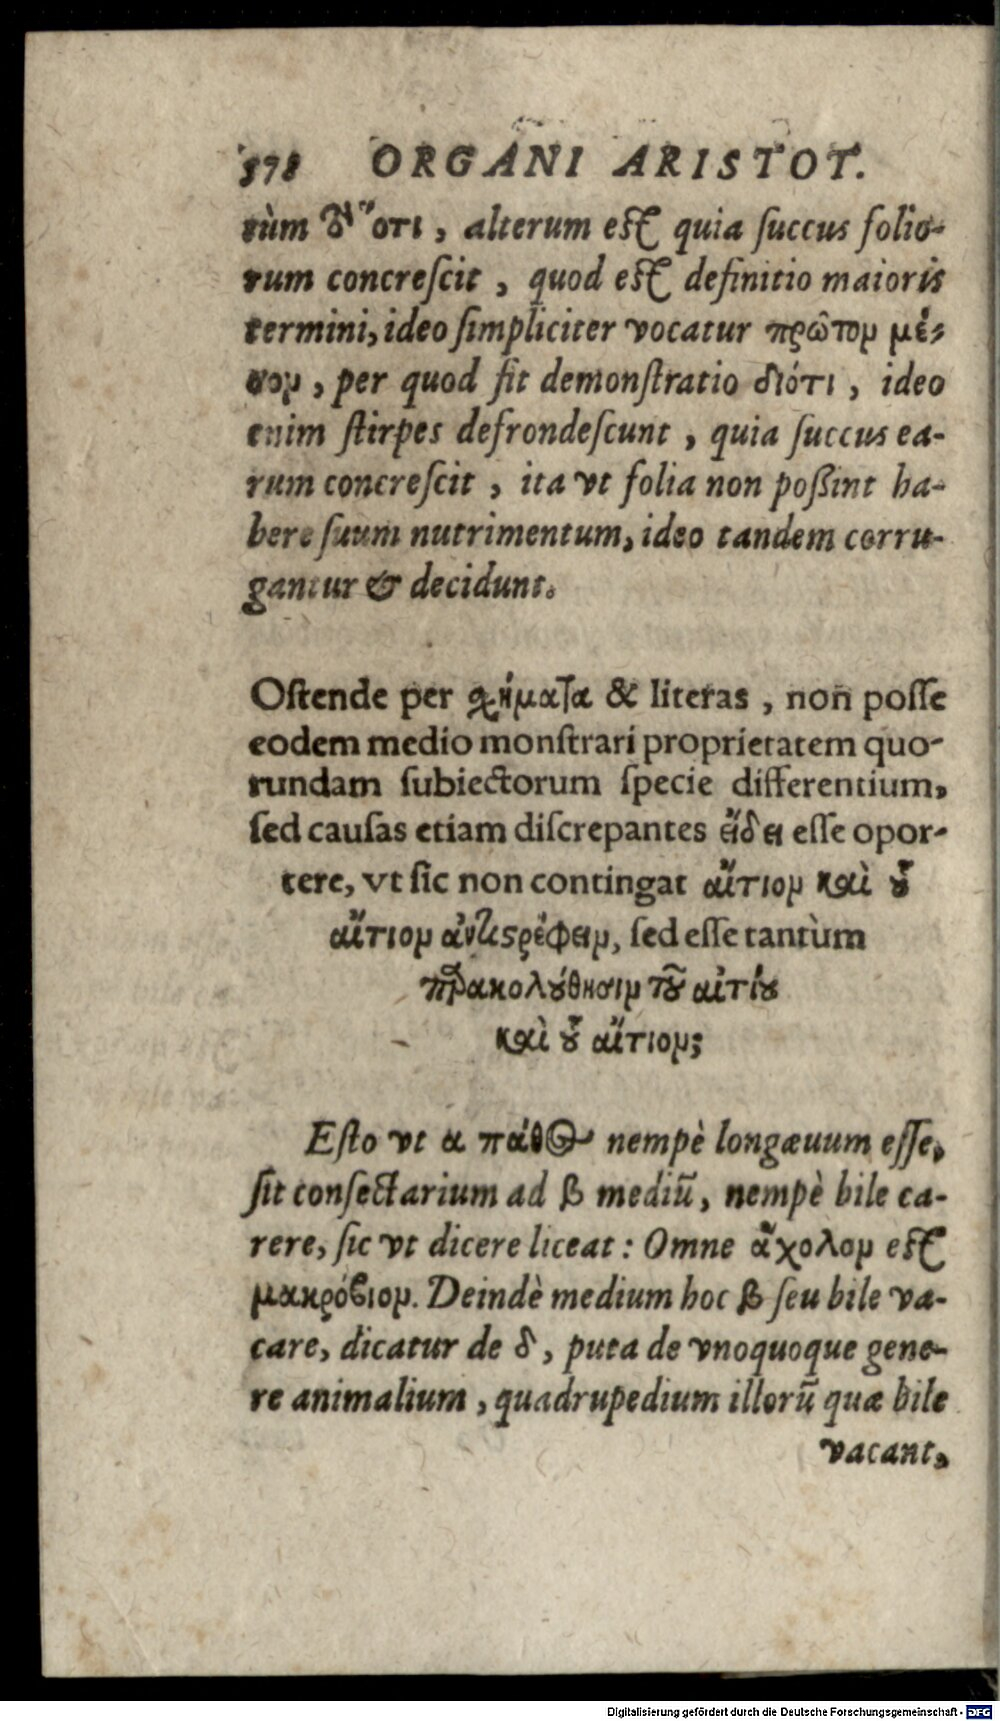 378 ORGANI ARISTOT.
tùm τὸ ὅτι, alterum est quia ſuccus folio-
rum concreſcit, quod est definitio maioris
termini, ideo ſimpliciter vocatur πρῶτον μέ-
σον, per quod fit demonſtratio διότι, ideo
enim ſtirpes defrondeſcunt, quia ſuccus ea-
rum concreſcit, ita vt folia non poßint ha-
bere ſuum nutrimentum, ideo tandem corru-
gantur & decidunt.
Oſtende per σχήματα & literas, non poſſe
eodem medio monſtrari proprietatem quo-
rundam ſubiectorum ſpecie differentium,
ſed cauſas etiam diſcrepantes εἴδει eſſe opor-
tere, vt ſic non contingat αἴτιον καὶ οὗ
αἴτιον ἀντιστρέφειν, ſed eſſe tantùm
παρακολούθησιν τοῦ αἰτίου
καὶ οὗ αἴτιον;
Eſto vt α πάθος nempè longæuum eſſe,
ſit conſectarium ad β mediū, nempè bile ca-
rere, ſic vt dicere liceat: Omne ἄχολον est
μακρόβιον. Deindè medium hoc β ſeu bile va-
care, dicatur de δ, puta de vnoquoque gene-
re animalium, quadrupedium illorū quæ bile
vacant,
Digitalisierung gefördert durch die Deutsche Forschungsgemeinschaft - DFG